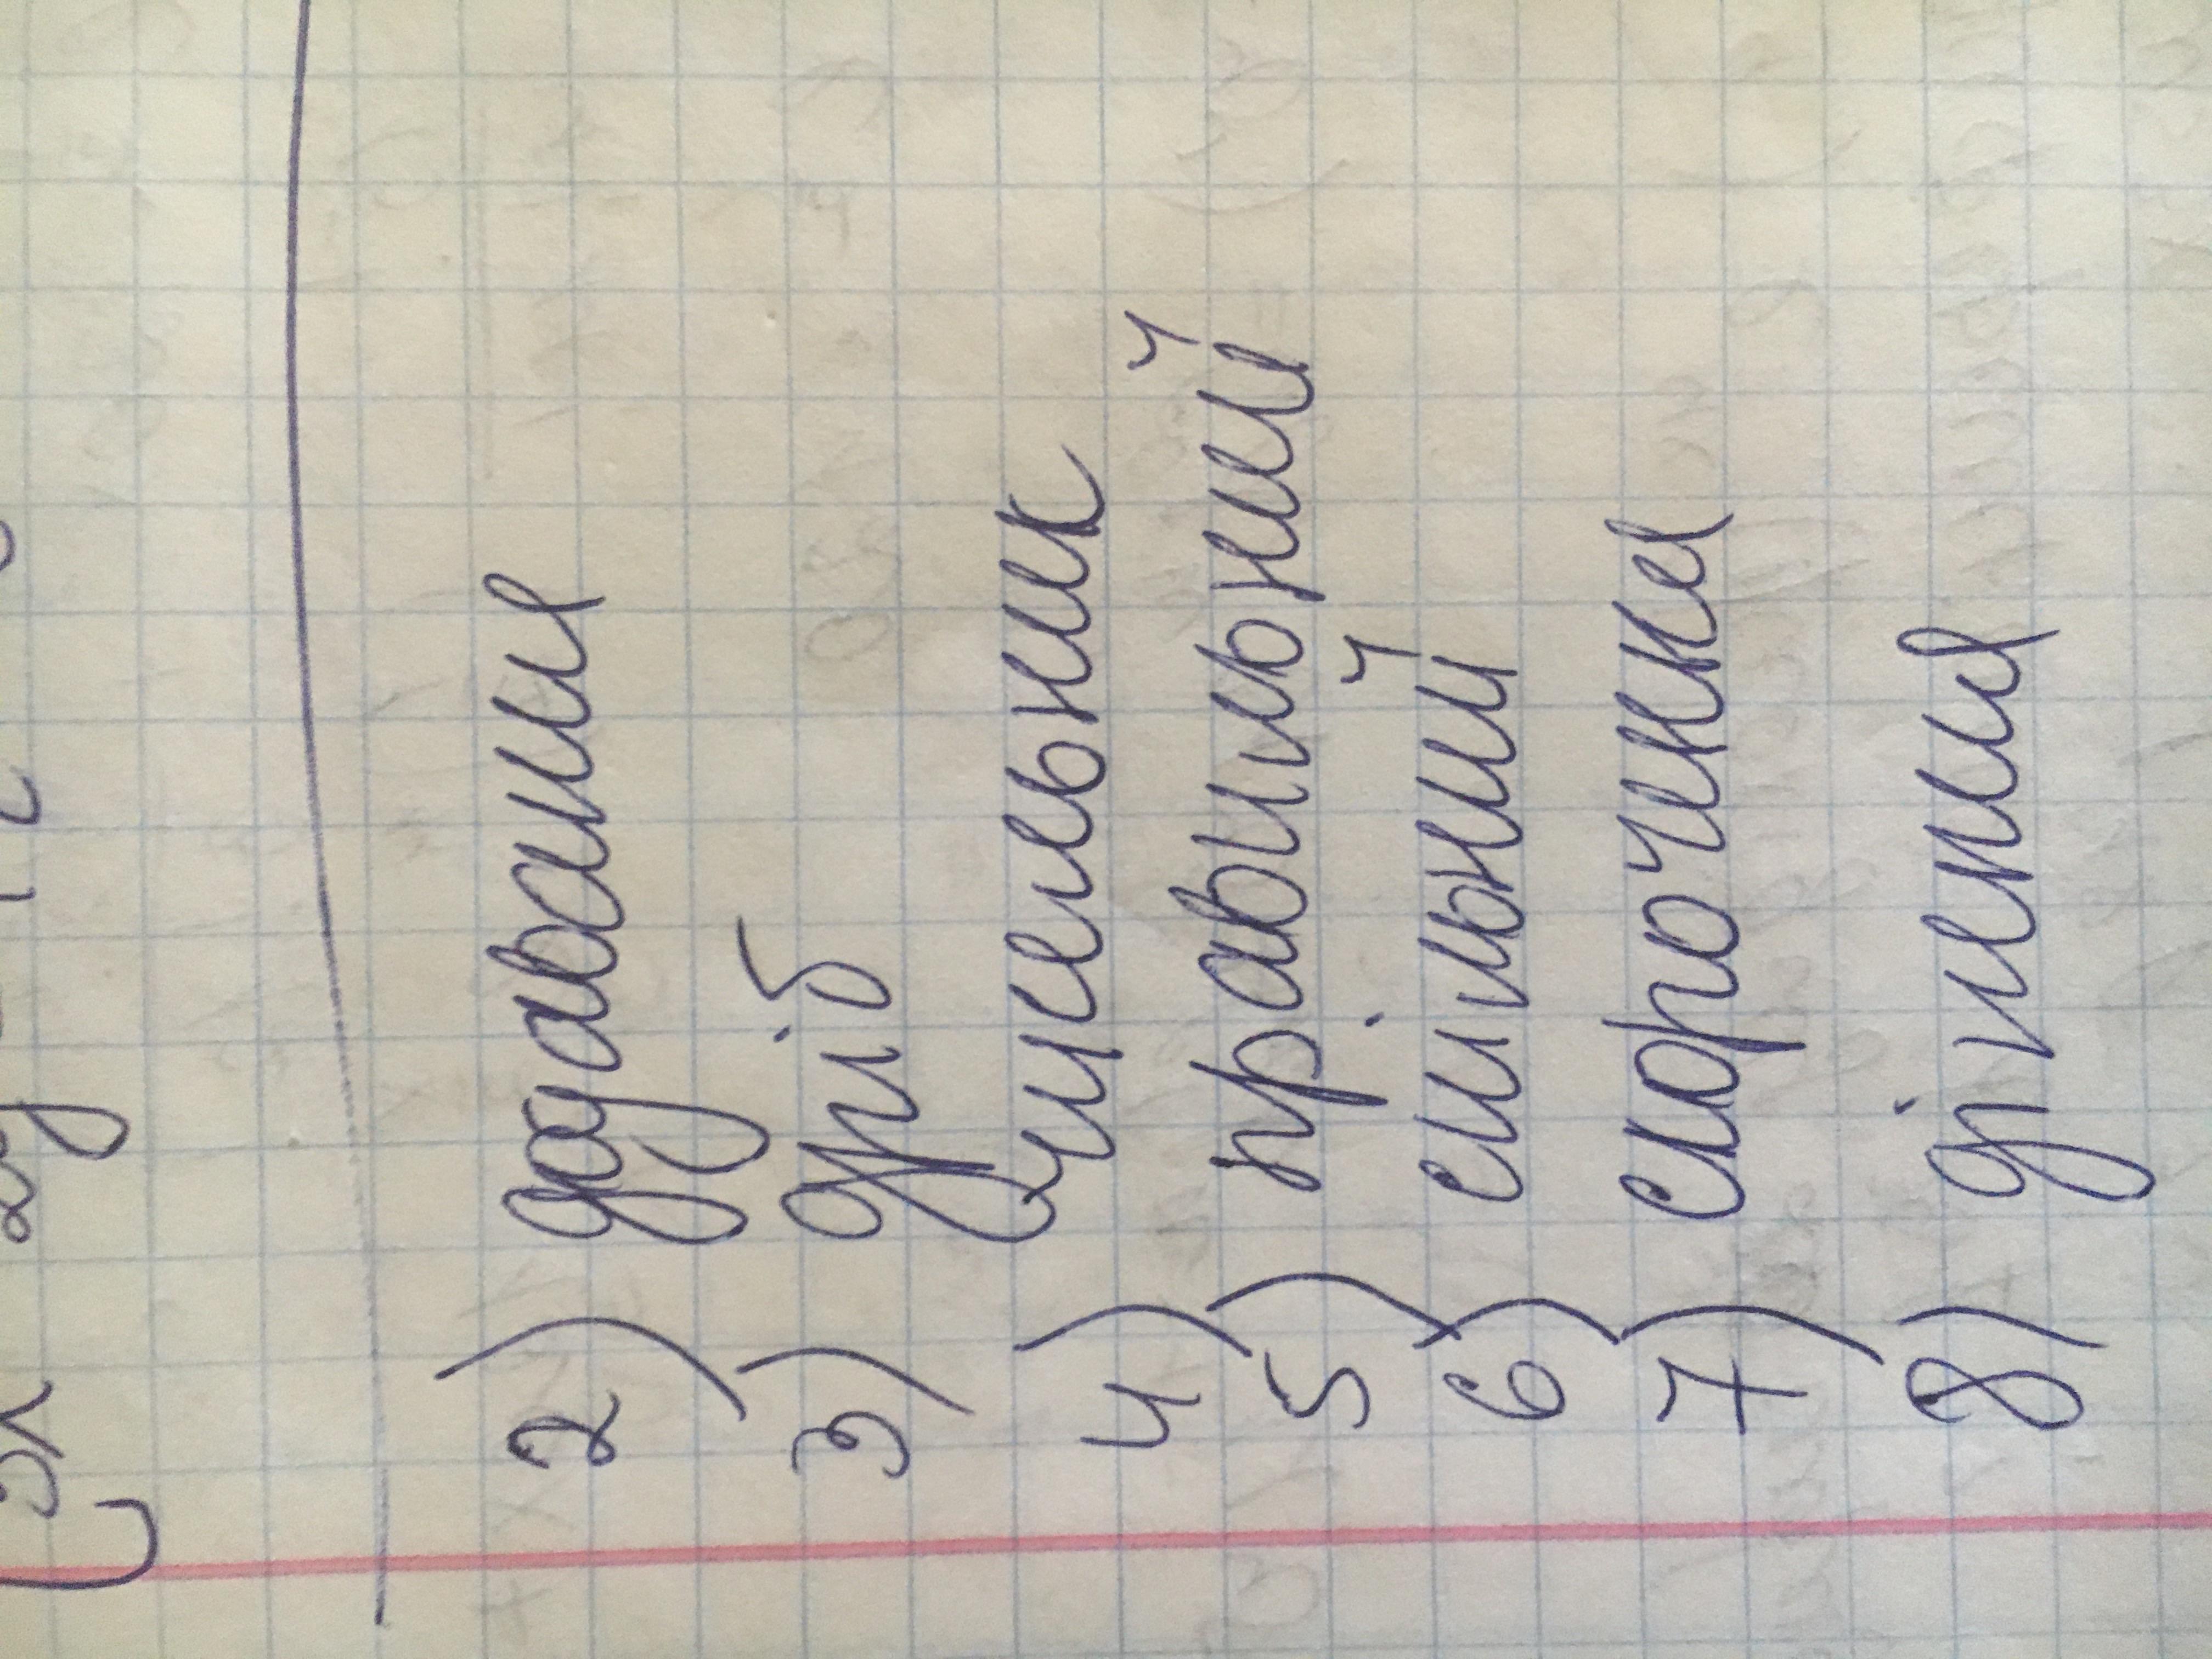 2) додавання
3) дріб
4) чисельник
5) правильний
6) спільний
7) скорочення
8) ділення